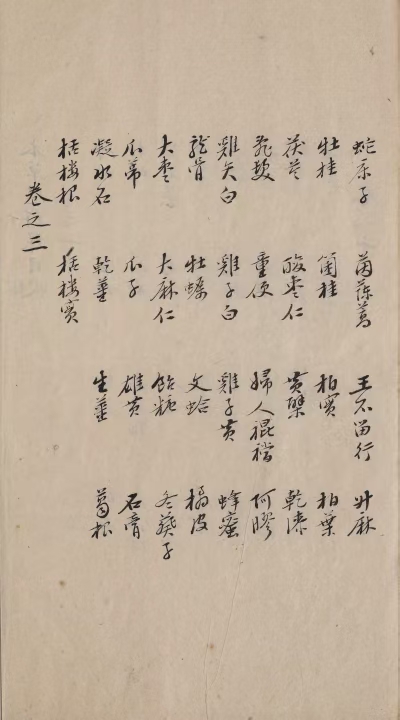 蛇床子 茵蔯蒿 王不留行 升麻
牡桂 箘桂 柏實 柏葉
茯苓 酸棗仁 黃檗 乾漆
亂髮 童便 婦人裩襠 阿膠
雞矢白 雞子白 雞子黃 蜂蜜
龍骨 牡蠣 文蛤 橘皮
大棗 大麻仁 飴糖 冬葵子
瓜蒂 瓜子 雄黃 石膏
凝水石 乾薑 生薑 葛根
栝樓根 栝樓實
卷之三